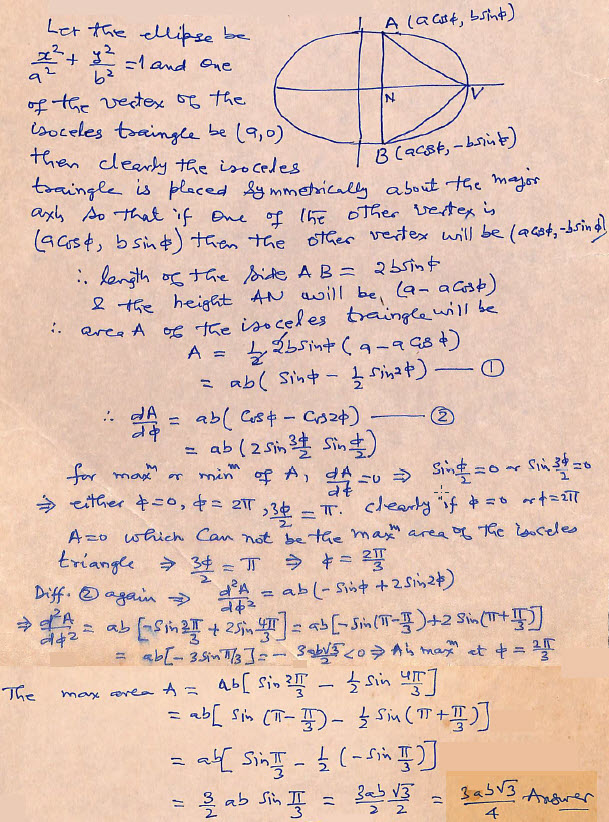 Let the ellipse be
x²/a² + y²/b² = 1 and one
of the vertex of the
isoceles traingle be (a,0)
then clearly the isoceles
traingle is placed symmetrically about the major
axis so that if one of the other vertex is
(a cosφ, b sinφ) then the other vertex will be (a cosφ, -b sinφ)
A (a cosφ, b sinφ)
N
V
B (a cosφ, -b sinφ)
∴ length of the side AB = 2b sinφ
& the height AN will be (a - a cosφ)
∴ area A of the isoceles traingle will be
A = 1/2 2b sinφ (a - a cosφ)
= ab (sinφ - 1/2 sin2φ) — ①
∴ dA/dφ = ab (cosφ - cos2φ) — ②
= ab (2 sin 3φ/2 sin φ/2)
for maxᵐ or minᵐ of A, dA/dφ = 0 ⇒ sin φ/2 = 0 or sin 3φ/2 = 0
⇒ either φ = 0, φ = 2π, 3φ/2 = π. clearly if φ = 0 or φ = 2π
A = 0 which can not be the maxᵐ area of the isoceles
triangle ⇒ 3φ/2 = π ⇒ φ = 2π/3
Diff. ② again ⇒ d²A/dφ² = ab (-sinφ + 2 sin2φ)
⇒ d²A/dφ² = ab [-sin 2π/3 + 2 sin 4π/3] = ab [-sin(π - π/3) + 2 sin(π + π/3)]
= ab [-3 sin π/3] = - 3ab√3/2 < 0 ⇒ A is maxᵐ at φ = 2π/3
The max area A = ab [sin 2π/3 - 1/2 sin 4π/3]
= ab [sin (π - π/3) - 1/2 sin (π + π/3)]
= ab [sin π/3 - 1/2 (-sin π/3)]
= 3/2 ab sin π/3 = 3ab/2 √3/2 = 3ab√3/4 Answer